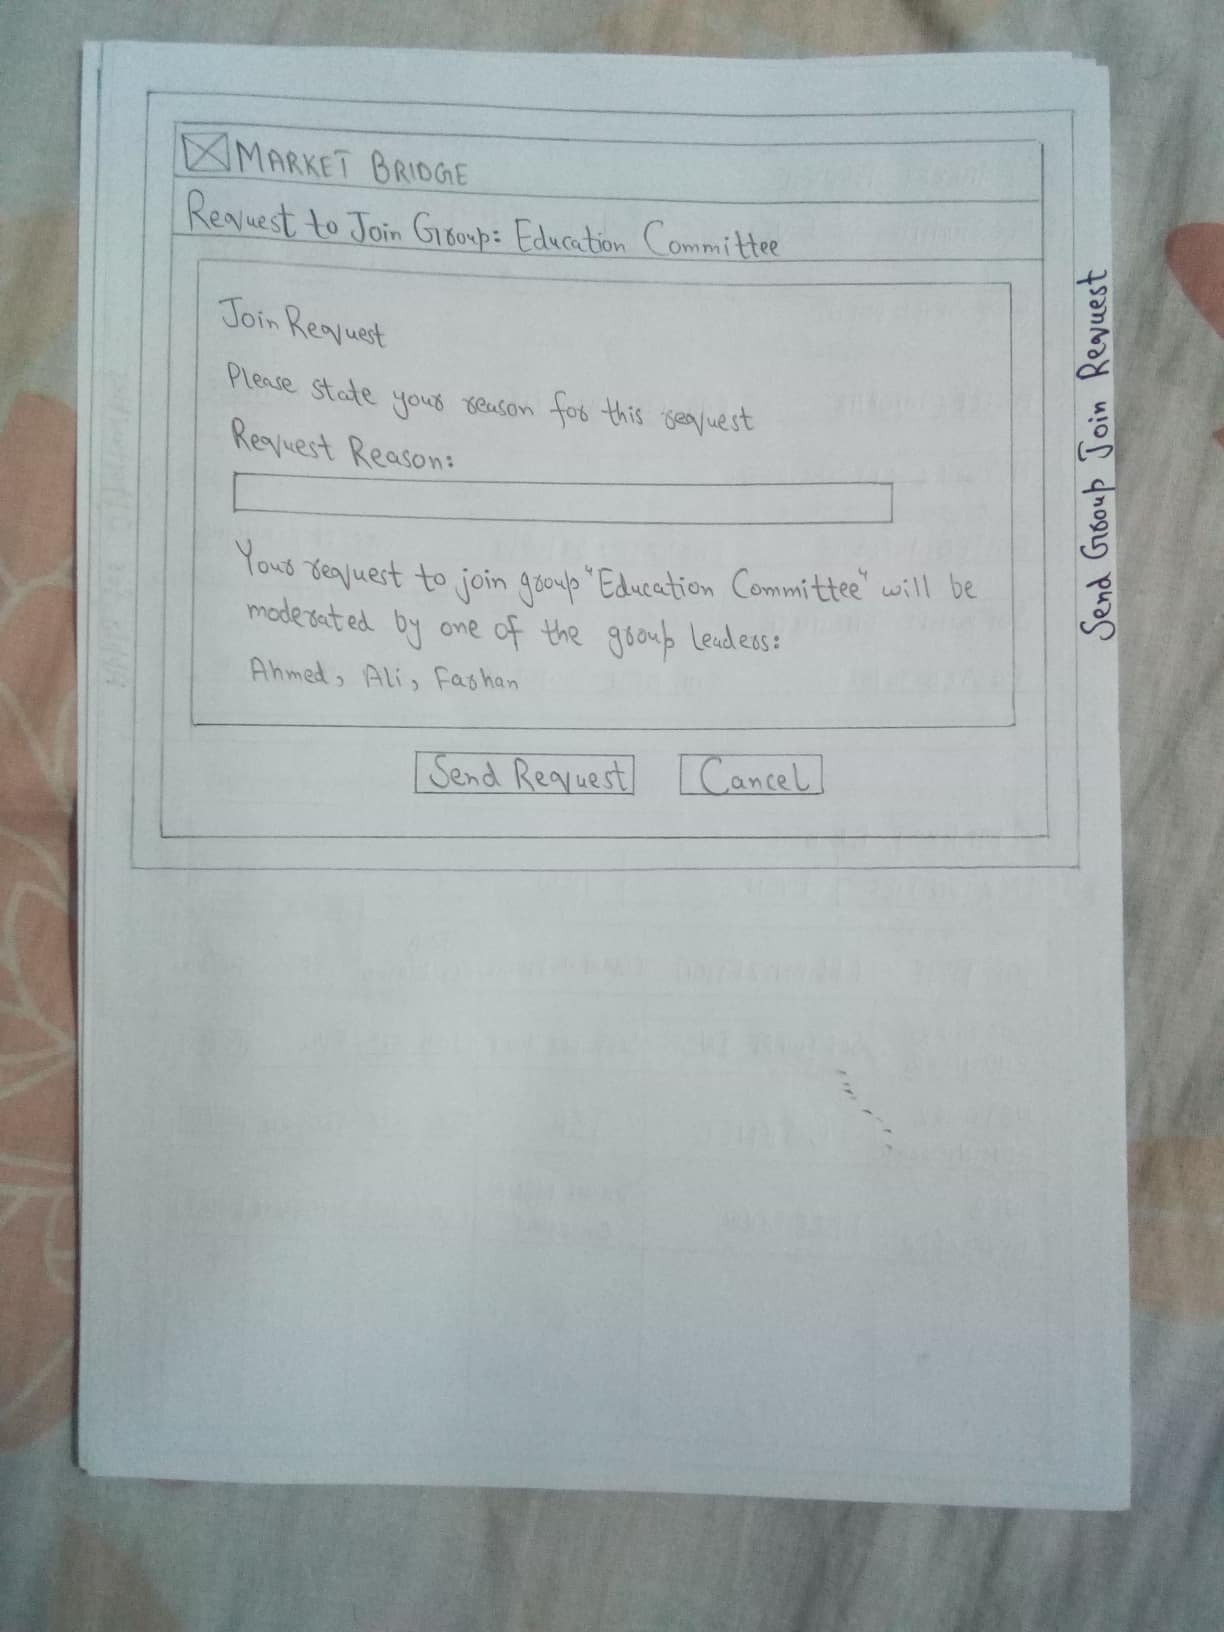 MARKET BRIDGE
Request to Join Group: Education Committee
Join Request
Please state your reason for this request
Request Reason:
Your request to join group "Education Committee" will be
moderated by one of the group leaders:
Ahmed, Ali, Farhan
Send Request
Cancel
Send Group Join Request